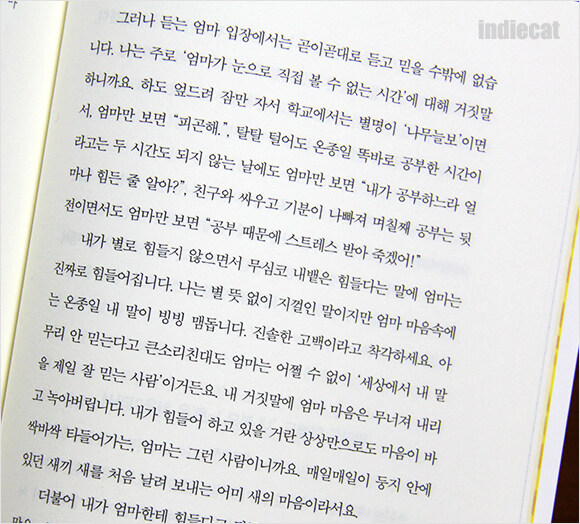 indiecat
그러나 듣는 엄마 입장에서는 곧이곧대로 듣고 믿을 수밖에 없습
니다. 나는 주로 ‘엄마가 눈으로 직접 볼 수 없는 시간’에 대해 거짓말
하니까요. 하도 엎드려 잠만 자서 학교에서는 별명이 ‘나무늘보’이면
서, 엄마만 보면 “피곤해.”, 탈탈 털어도 온종일 똑바로 공부한 시간이
라고는 두 시간도 되지 않는 날에도 엄마만 보면 “내가 공부하느라 얼
마나 힘든 줄 알아?”, 친구와 싸우고 기분이 나빠져 며칠째 공부는 뒷
전이면서도 엄마만 보면 “공부 때문에 스트레스 받아 죽겠어!”
내가 별로 힘들지 않으면서 무심코 내뱉은 힘들다는 말에 엄마는
진짜로 힘들어집니다. 나는 별 뜻 없이 지껄인 말이지만 엄마 마음속에
는 온종일 내 말이 빙빙 맴돕니다. 진솔한 고백이라고 착각하세요. 아
무리 안 믿는다고 큰소리친대도 엄마는 어쩔 수 없이 ‘세상에서 내 말
을 제일 잘 믿는 사람’이거든요. 내 거짓말에 엄마 마음은 무너져 내리
고 녹아버립니다. 내가 힘들어 하고 있을 거란 상상만으로도 마음이 바
싹바싹 타들어가는, 엄마는 그런 사람이니까요. 매일매일이 둥지 안에
있던 새끼 새를 처음 날려 보내는 어미 새의 마음이라서요.
더불어 내가 엄마한테 힘들다고